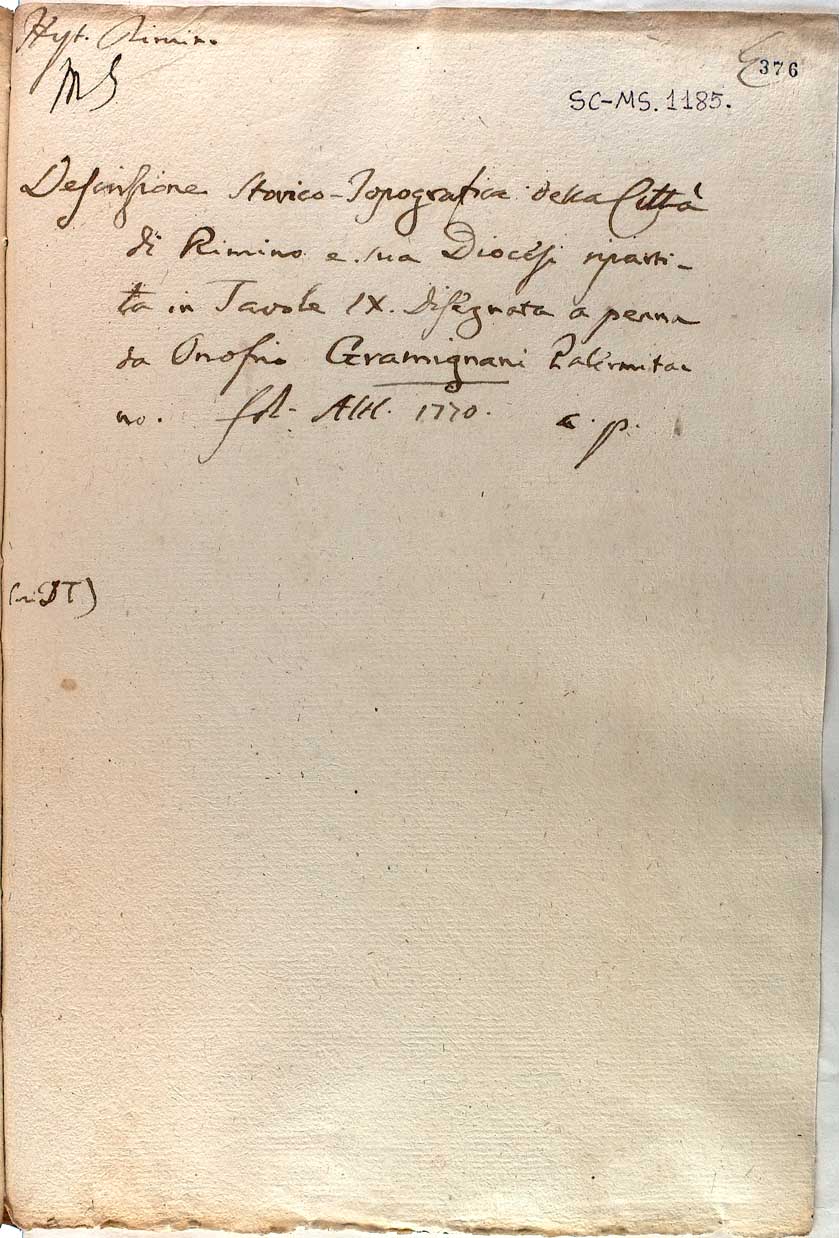 Hyst. Rimin.
MS
376
SC-MS. 1185.
Descrissione Storico-Topografica della Città
di Rimino e sua Diocesi riparti-
ta in Tavole IX. Disegnata a penna
da Onofrio Gramignani Palermita-
no. fol. Atl. 1770. c. p.